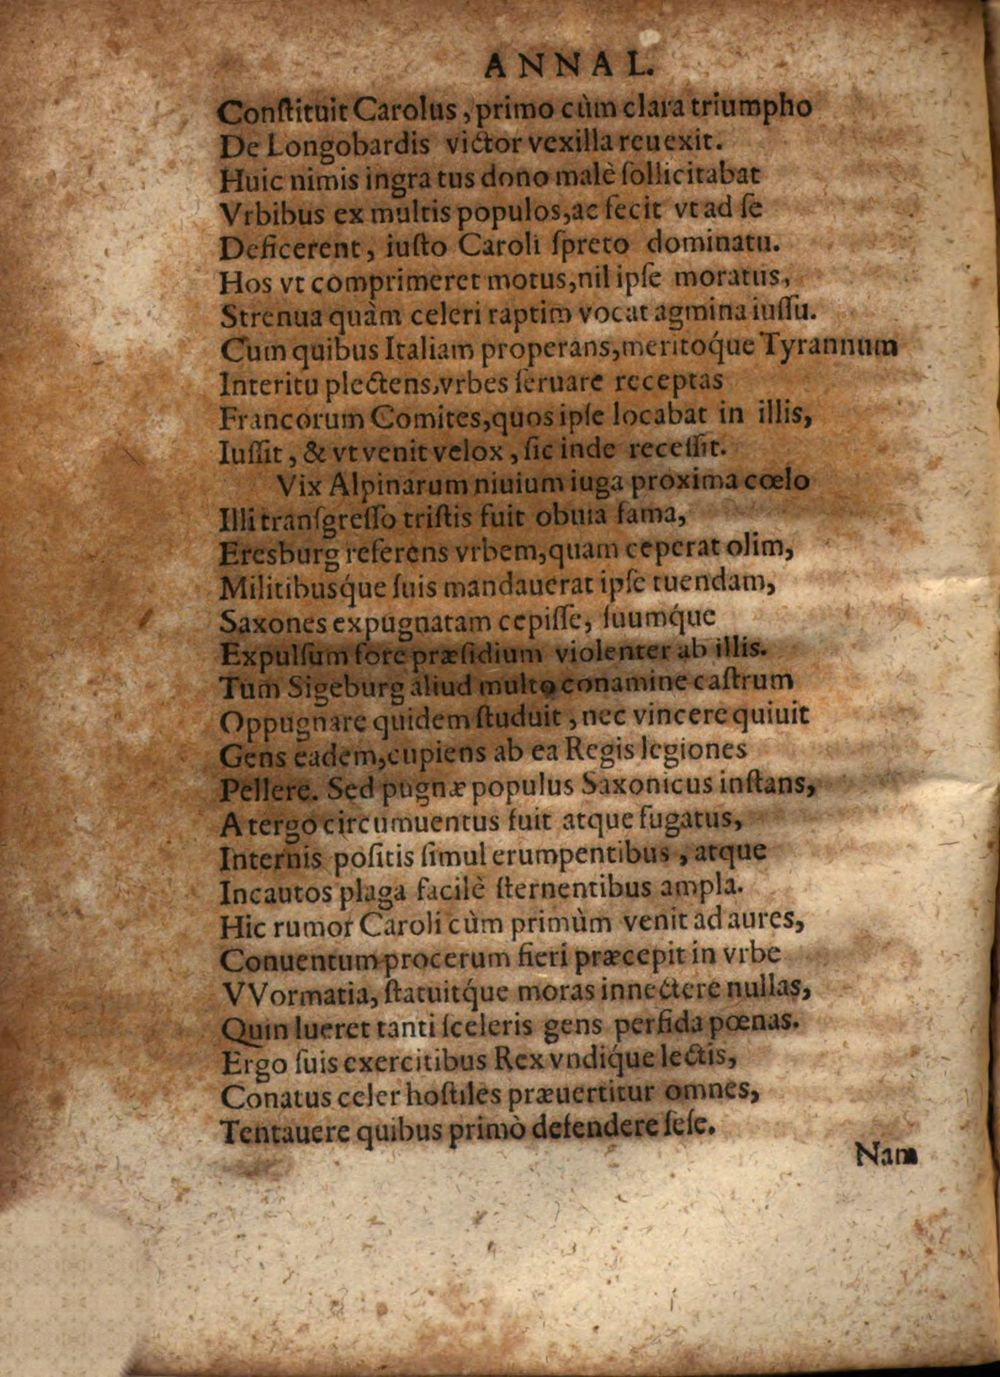 ANNAL.
Conſtituit Carolus, primo cùm clara triumpho
De Longobardis victor vexilla reuexit.
Huic nimis ingratus dono malè ſollicitabat
Vrbibus ex multis populos, ac fecit vt ad ſe
Deficerent, iuſto Caroli ſpreto dominatu.
Hos vt comprimeret motus, nil ipſe moratus,
Strenua quàm celeri raptim vocat agmina iuſſu.
Cum quibus Italiam properans, meritoq́ue Tyrannum
Interitu plectens, vrbes ſeruare receptas
Francorum Comites, quos ipſe locabat in illis,
Iuſſit, & vt venit velox, ſic inde receſſit.
Vix Alpinarum niuium iuga proxima cœlo
Illi tranſgreſſo triſtis fuit obuia fama,
Eresburg referens vrbem, quam ceperat olim,
Militibusq́ue ſuis mandauerat ipſe tuendam,
Saxones expugnatam cepiſſe, ſuumq́ue
Expulſum fore præſidium violenter ab illis.
Tum Sigeburg aliud multo conamine caſtrum
Oppugnare quidem ſtuduit, nec vincere quiuit
Gens eadem, cupiens ab ea Regis legiones
Pellere. Sed pugnæ populus Saxonicus inſtans,
A tergo circumuentus fuit atque fugatus,
Internis poſitis ſimul erumpentibus, atque
Incautos plaga facilè ſternentibus ampla.
Hic rumor Caroli cùm primùm venit ad aures,
Conuentum procerum fieri præcepit in vrbe
VVormatia, ſtatuitq́ue moras innectere nullas,
Quin lueret tanti ſceleris gens perfida pœnas.
Ergo ſuis exercitibus Rex vndiq́ue lectis,
Conatus celer hoſtiles præuertitur omnes,
Tentauere quibus primò defendere ſeſe.
Nam